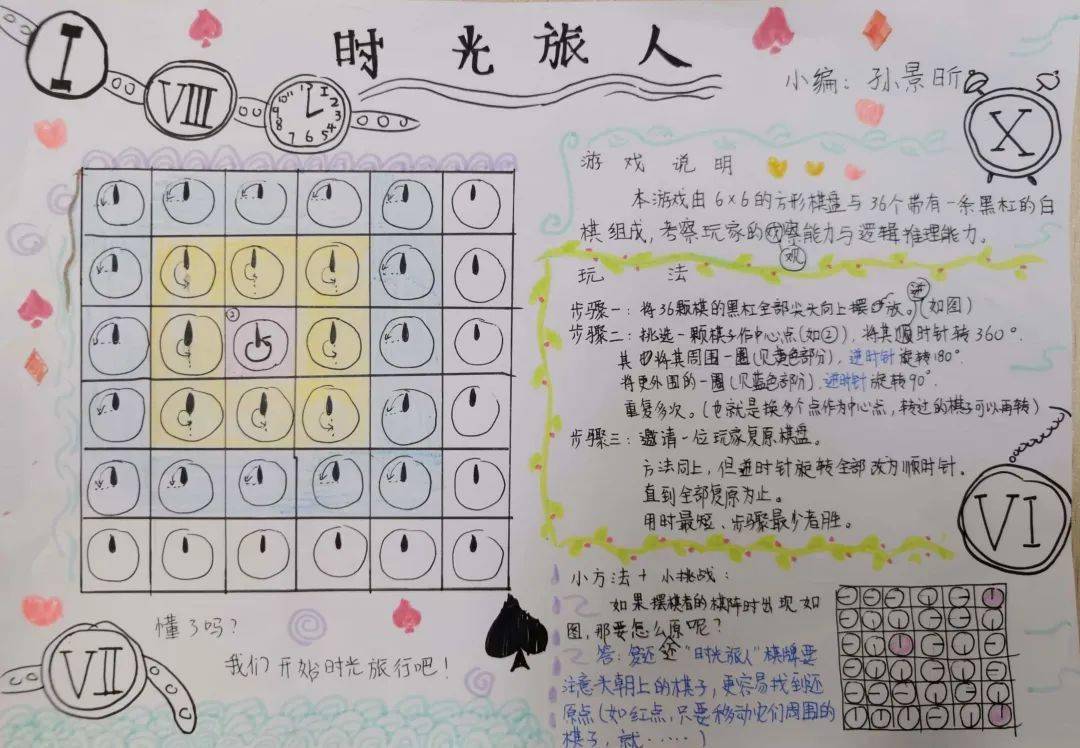 I
VIII
12
1
2
3
4
5
6
7
8
9
10
11
时光旅人
小编：孙景昕
X
游戏说明
本游戏由6×6的方形棋盘与36个带有一条黑杠的白
棋组成，考察玩家的观察能力与逻辑推理能力。
玩法
步骤一：将36颗棋的黑杠全部尖头向上摆放。（如图）
步骤二：挑选一颗棋子作中心点（如②），将其顺时针转360°.
其次将其周围一圈（见黄色部分），逆时针旋转180°.
将更外围的一圈（见蓝色部分），逆时针旋转90°.
重复多次。（也就是换多个点作为中心点，转过的棋子可以再转）
步骤三：邀请一位玩家复原棋盘。
方法同上，但逆时针旋转全部改为顺时针。
直到全部复原为止。
用时最短、步骤最少者胜。
②
VI
小方法+小挑战：
如果摆棋者的棋阵时出现如
图，那要怎么原呢？
答：复还原“时光旅人”棋牌要
注意头朝上的棋子，更容易找到还
原点（如红点，只要移动它们周围的
棋子，就……）
懂了吗？
我们开始时光旅行吧！
VII